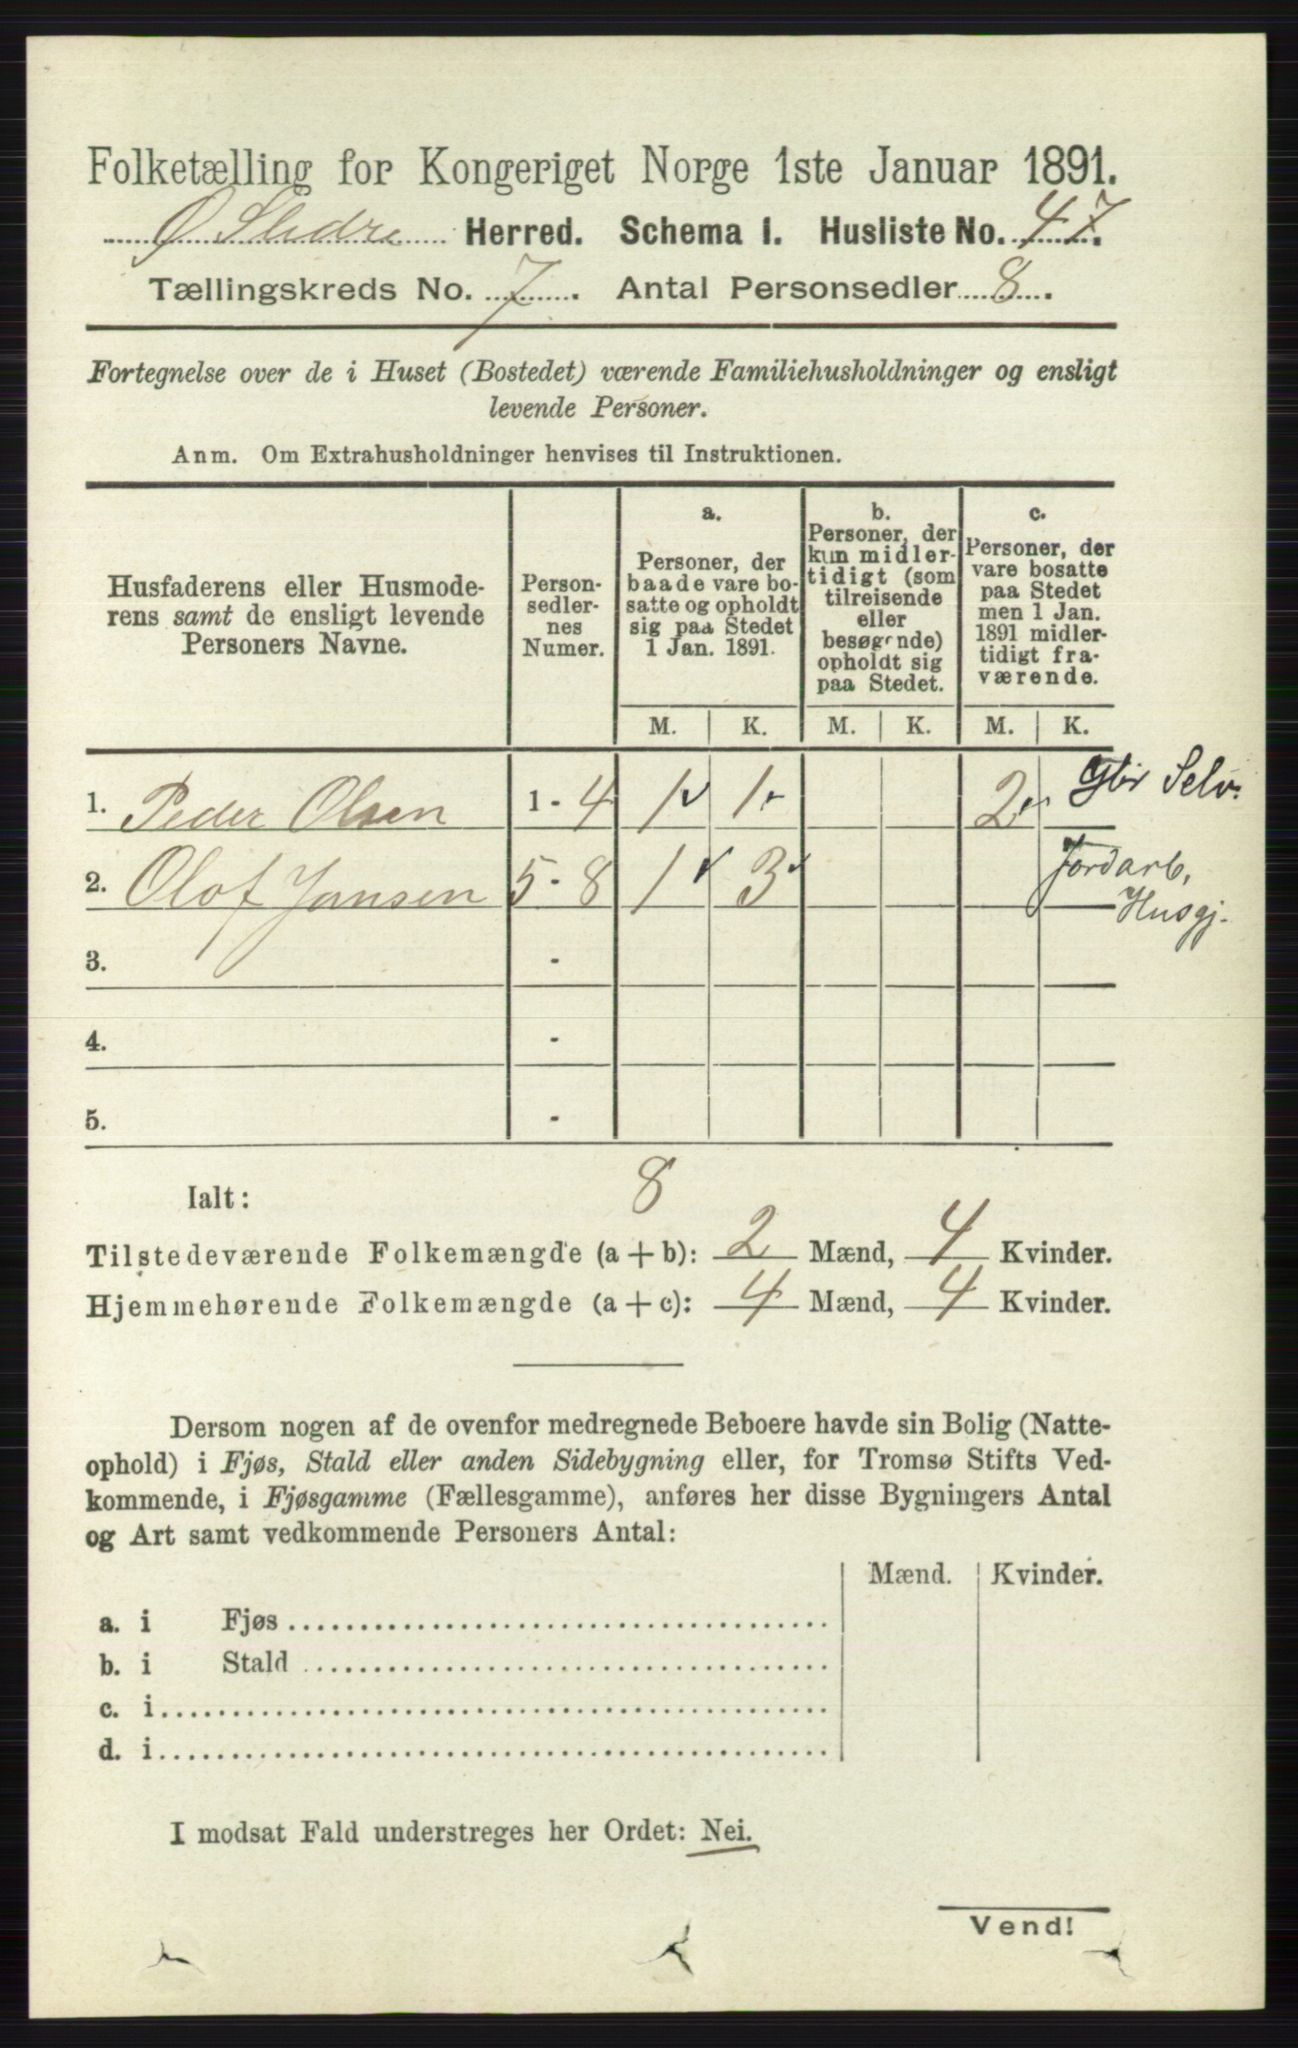 Folketælling for Kongeriget Norge 1ste Januar 1891.
Ø Slidre Herred. Schema I. Husliste No. 47.
Tællingskreds No. 7. Antal Personsedler 8.
Fortegnelse over de i Huset (Bostedet) værende Familiehusholdninger og ensligt
levende Personer.
Anm. Om Extrahusholdninger henvises til Instruktionen.
Husfaderens eller Husmode-
rens samt de ensligt levende
Personers Navne.
Person-
sedler-
nes
Numer.
a.
Personer, der
baade vare bo-
satte og opholdt
sig paa Stedet
1 Jan. 1891.
b.
Personer, der
kun midler-
tidigt (som
tilreisende
eller
besøgende)
opholdt sig
paa Stedet.
c.
Personer, der
vare bosatte
paa Stedet
men 1 Jan.
1891 midler-
tidigt fra-
værende.
M. K. M. K. M. K.
1. Peder Olsen 1 - 4 1 1 2 Gbr Selv.
2. Olof Jansen 5 - 8 1 3 Jordarb,
Husgj.
3. -
4. -
5. -
Ialt: 8
Tilstedeværende Folkemængde (a + b): 2 Mænd, 4 Kvinder.
Hjemmehørende Folkemængde (a + c): 4 Mænd, 4 Kvinder.
Dersom nogen af de ovenfor medregnede Beboere havde sin Bolig (Natte-
ophold) i Fjøs, Stald eller anden Sidebygning eller, for Tromsø Stifts Ved-
kommende, i Fjøsgamme (Fællesgamme), anføres her disse Bygningers Antal
og Art samt vedkommende Personers Antal:
Mænd. Kvinder.
a. i Fjøs
b. i Stald
c. i
d. i
I modsat Fald understreges her Ordet: Nei.
Vend!